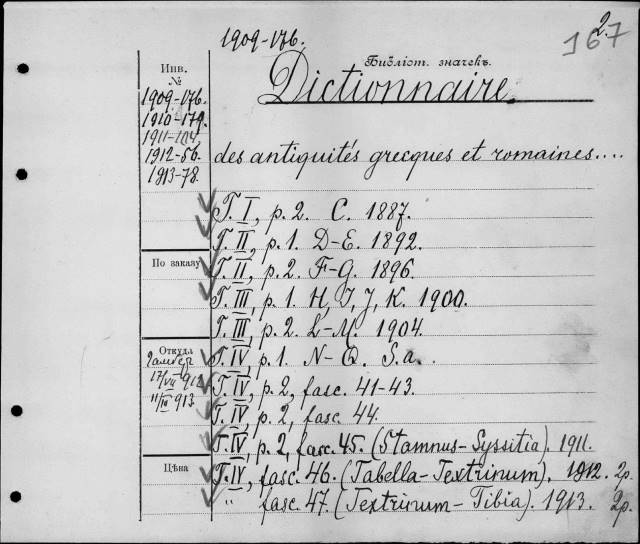 2.
1909-176.
167
Библіот. значекъ.
Инв.
№
Dictionnaire.
1909-176.
1910-179.
1911-104.
1912-56.
1913-78.
des antiquités grecques et romaines....
T. I, p. 2. C. 1887.
T. II, p. 1. D-E. 1892.
По заказу
T. II, p. 2. F-G. 1896.
T. III, p. 1. H, I, J, K. 1900.
T. III, p. 2. L-M. 1904.
Откуда
T. IV, p. 1. N-Q. S.a.
17/VII 912
T. IV, p. 2, fasc. 41-43.
11/III 913
T. IV, p. 2, fasc. 44.
T. IV, p. 2, fasc. 45. (Stamnus-Syssitia). 1911.
Цѣна
T. IV, fasc. 46. (Tabella-Textrinum). 1912. 2р.
" fasc. 47. (Textrinum-Tibia). 1913. 2р.